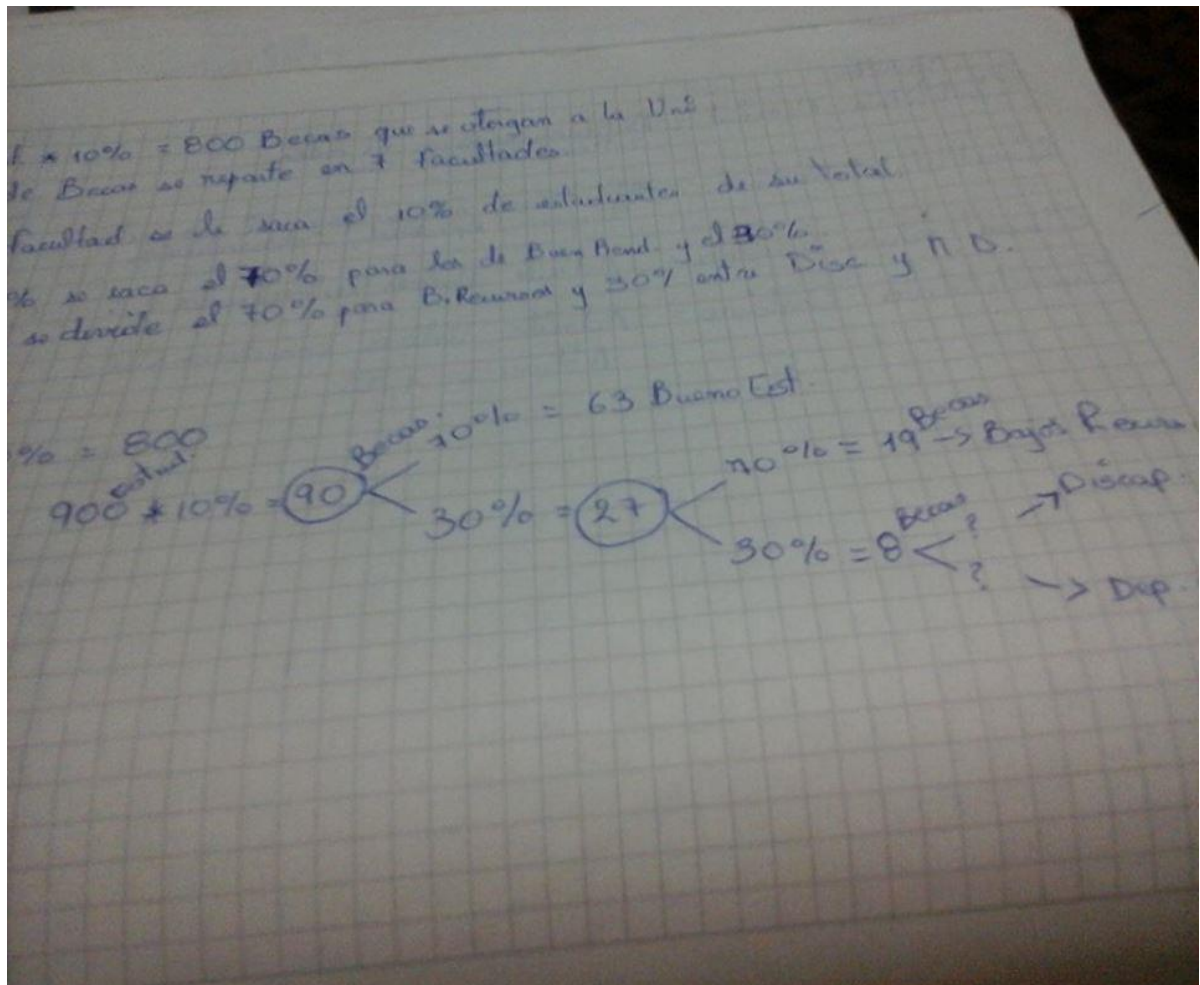 * 10% = 800 Becas que se otorgan a la Uni
de Becas se reparte en 7 Facultades.
Facultad se le saca el 10% de estudiantes de su total.
% se saca el 70% para los de Buen Rend. y el 30%
se divide el 70% para B. Recursos y 30% entre Disc y D.
% = 800
900 estud. * 10% = 90 Becas
70% = 63 Bueno Est.
30% = 27
70% = 19 Becas -> Bajos Recurs
30% = 8 Becas
? -> Discap.
? -> Dep.